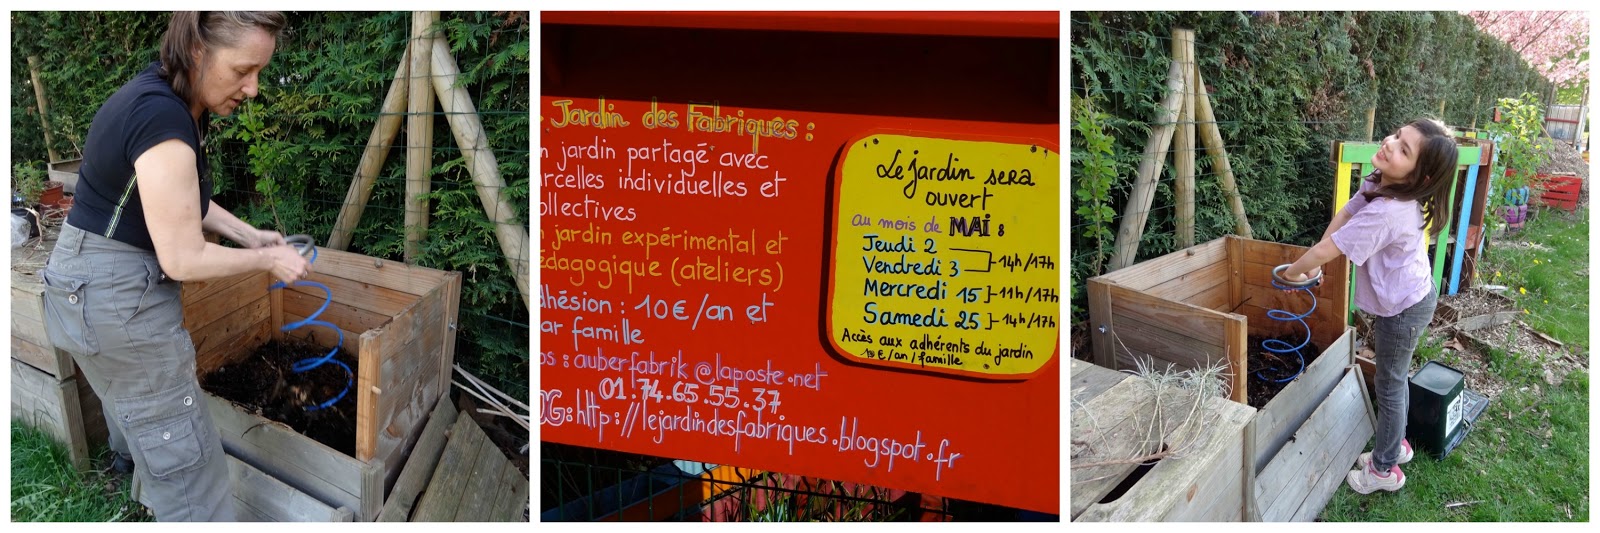 Jardin des Fabriques :
n jardin partagé avec
arcelles individuelles et
ollectives
n jardin expérimental et
édagogique (ateliers)
dhésion : 10€/an et
ar famille
os : auberfabrik@laposte.net
01.74.65.55.37
OG: http://lejardindesfabriques.blogspot.fr
Le jardin sera
ouvert
au mois de MAI :
Jeudi 2
Vendredi 3 } 14h/17h
Mercredi 15 } 11h/17h
Samedi 25 } 14h/17h
Accès aux adhérents du jardin
10€/an/famille